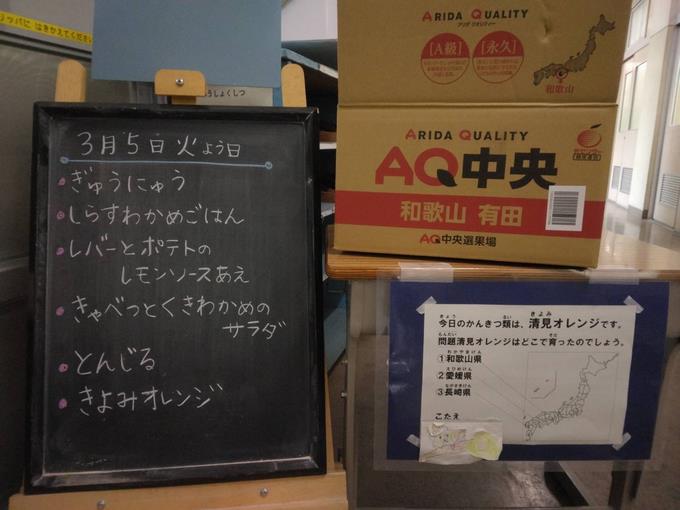 リッパに はきかえてください
うしょくしつ
3月5日火よう日
・ぎゅうにゅう
・しらすわかめごはん
・レバーとポテトの
レモンソースあえ
・きゃべつとくきわかめの
サラダ
・とんじる
・きよみオレンジ
ARIDA QUALITY
アリダ クオリティー
[A級]
[永久]
和歌山
ARIDA QUALITY
AQ中央
和歌山 有田
AQ中央選果場
今日のかんきつ類は、清見オレンジです。
問題清見オレンジはどこで育ったのでしょう。
①和歌山県
②愛媛県
③長崎県
こたえ